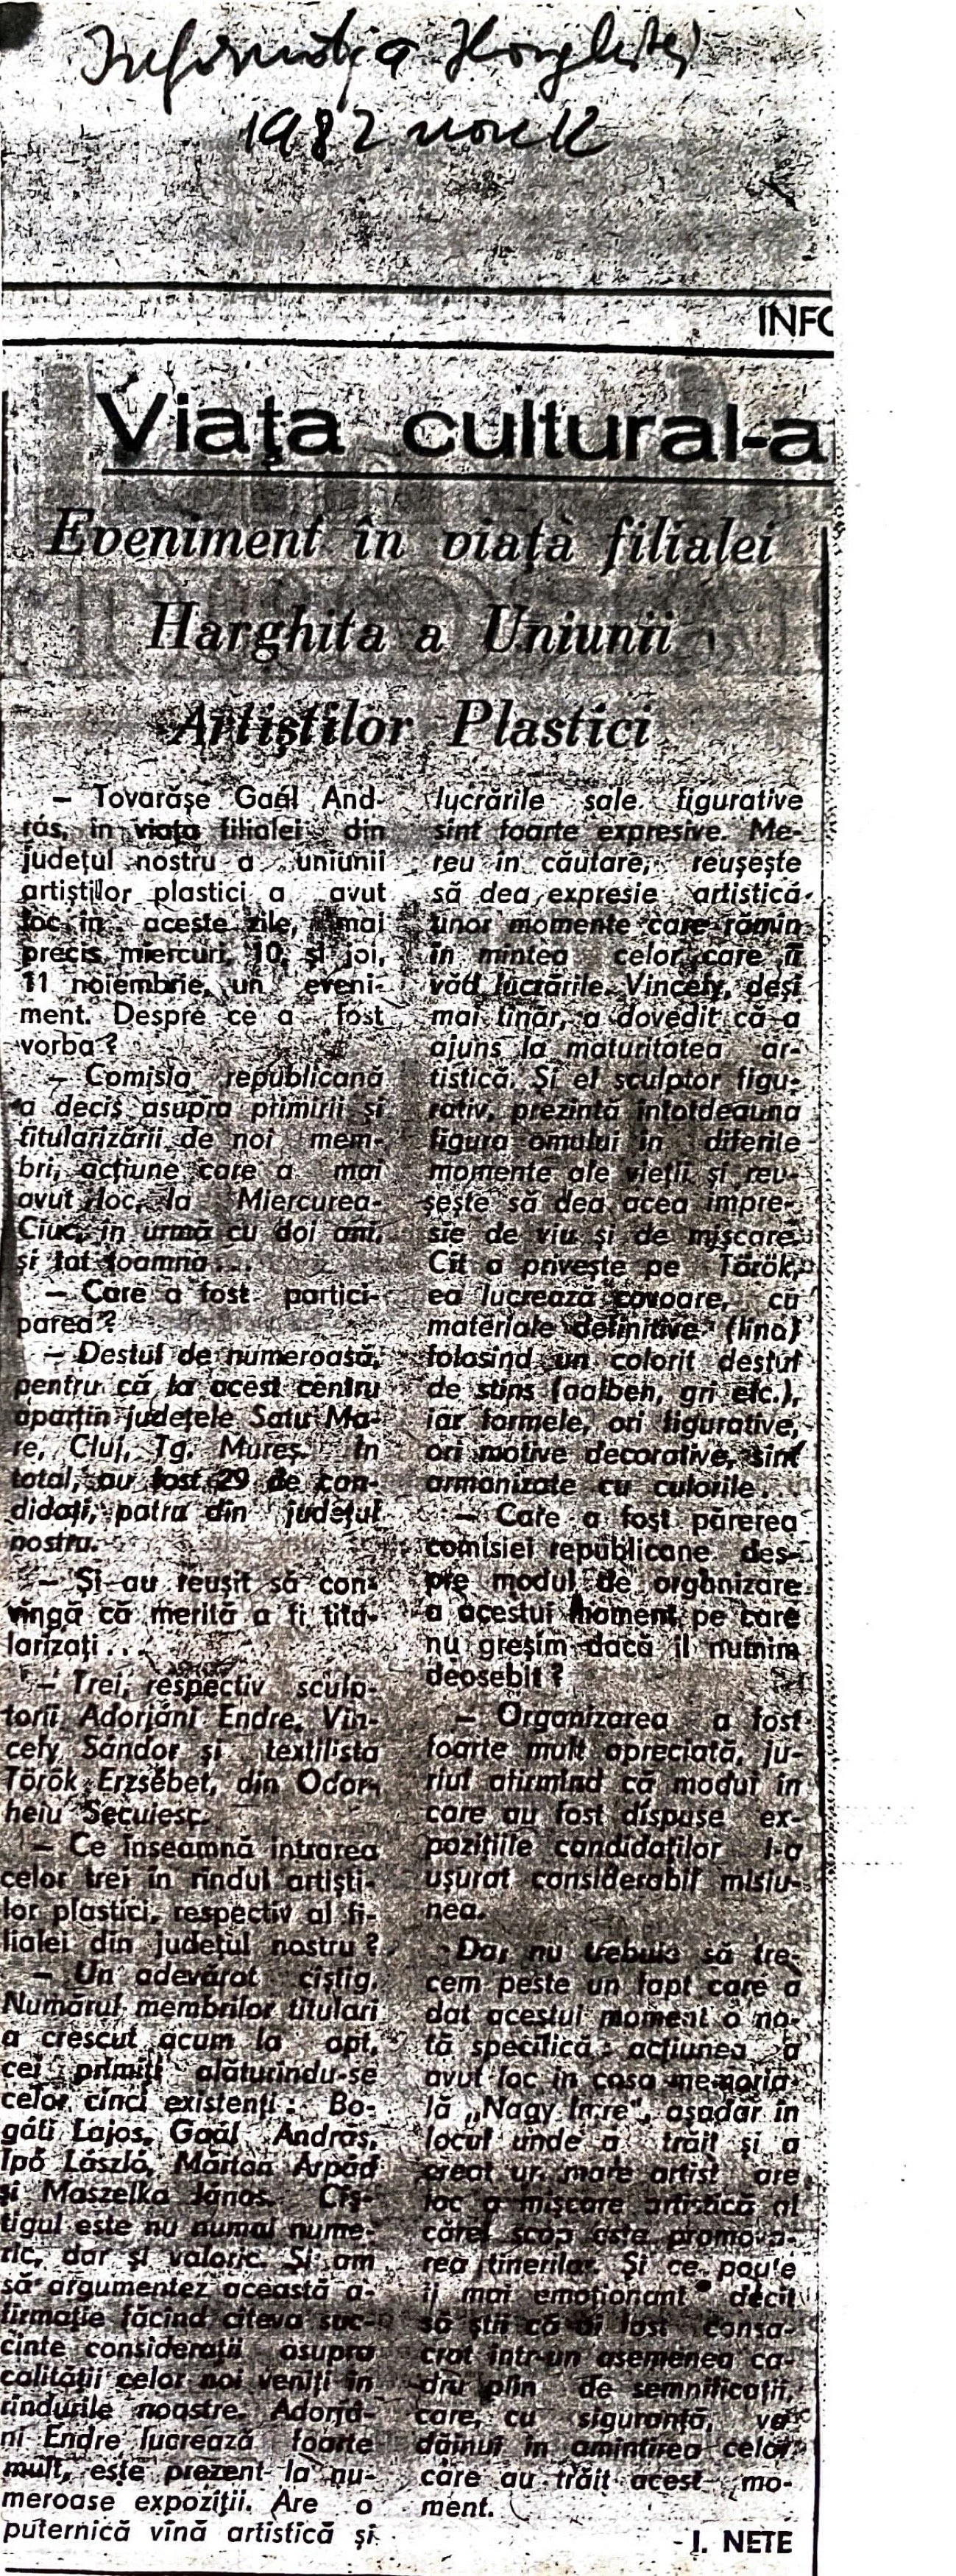 Informația Harghitei
1982 nov 12
INFO
Viaţa cultural-a
Eveniment în viaţa filialei
Harghita a Uniunii
Artiştilor Plastici
— Tovarăşe Gaál And-
rás, în viaţa filialei din
judeţul nostru a uniunii
artiştilor plastici a avut
loc în aceste zile, mai
precis miercuri, 10, şi joi,
11 noiembrie, un eveni-
ment. Despre ce a fost
vorba ?
— Comisia republicană
a decis asupra primirii şi
titularizării de noi mem-
bri, acţiune care a mai
avut loc, la Miercurea-
Ciuc, în urmă cu doi ani,
şi tot toamna...
— Care a fost partici-
parea ?
— Destul de numeroasă,
pentru că la acest centru
aparţin judeţele Satu Ma-
re, Cluj, Tg. Mureş. În
total, au fost 29 de can-
didaţi, patru din judeţul
nostru.
— Şi au reuşit să con-
vingă că merită a fi titu-
larizaţi...
— Trei, respectiv sculp-
torii Adorjáni Endre, Vin-
cefy Sándor şi textilista
Török Erzsébet, din Odor-
heiu Secuiesc.
— Ce înseamnă intrarea
celor trei în rîndul artişti-
lor plastici, respectiv al fi-
lialei din judeţul nostru ?
— Un adevărat cîştig.
Numărul membrilor titulari
a crescut acum la opt,
cei primiţi alăturîndu-se
celor cinci existenţi : Bo-
gáti Lajos, Gaál András,
Ipó László, Márton Árpád
şi Maszelka János. Cîş-
tigul este nu numai nume-
ric, dar şi valoric. Şi am
să argumentez această a-
firmaţie făcînd cîteva suc-
cinte consideraţii asupra
calităţii celor noi veniţi în
rîndurile noastre. Adorjá-
ni Endre lucrează foarte
mult, este prezent la nu-
meroase expoziţii. Are o
puternică vînă artistică şi
lucrările sale figurative
sînt foarte expresive. Me-
reu în căutare, reuşeşte
să dea expresie artistică
unor momente care rămîn
în mintea celor care îi
văd lucrările. Vincefy, deşi
mai tînăr, a dovedit că a
ajuns la maturitatea ar-
tistică. Şi el sculptor figu-
rativ, prezintă întotdeauna
figura omului în diferite
momente ale vieţii şi reu-
şeşte să dea acea impre-
sie de viu şi de mişcare.
Cît o priveşte pe Török,
ea lucrează covoare, cu
materiale definitive (lina)
folosind un colorit destul
de stins (galben, gri etc.),
iar formele, ori figurative,
ori motive decorative, sînt
armonizate cu culorile...
— Care a fost părerea
comisiei republicane des-
pre modul de organizare
a acestui moment pe care
nu greşim dacă îl numim
deosebit ?
— Organizarea a fost
foarte mult apreciată, ju-
riul afirmînd că modul în
care au fost dispuse ex-
poziţiile candidaţilor i-a
uşurat considerabil misiu-
nea.
Dar nu trebuie să tre-
cem peste un fapt care a
dat acestui moment o no-
tă specifică : acţiunea a
avut loc în casa memoria-
lă „Nagy Imre", aşadar în
locul unde a trăit şi a
creat un mare artist are
loc o mişcare artistică al
cărei scop este promova-
rea tinerilor. Şi ce poate
fi mai emoţionant decît
să ştii că ai fost consa-
crat într-un asemenea ca-
dru plin de semnificaţii,
care, cu siguranţă, va
dăinui în amintirea celor
care au trăit acest mo-
ment.
I. NETE